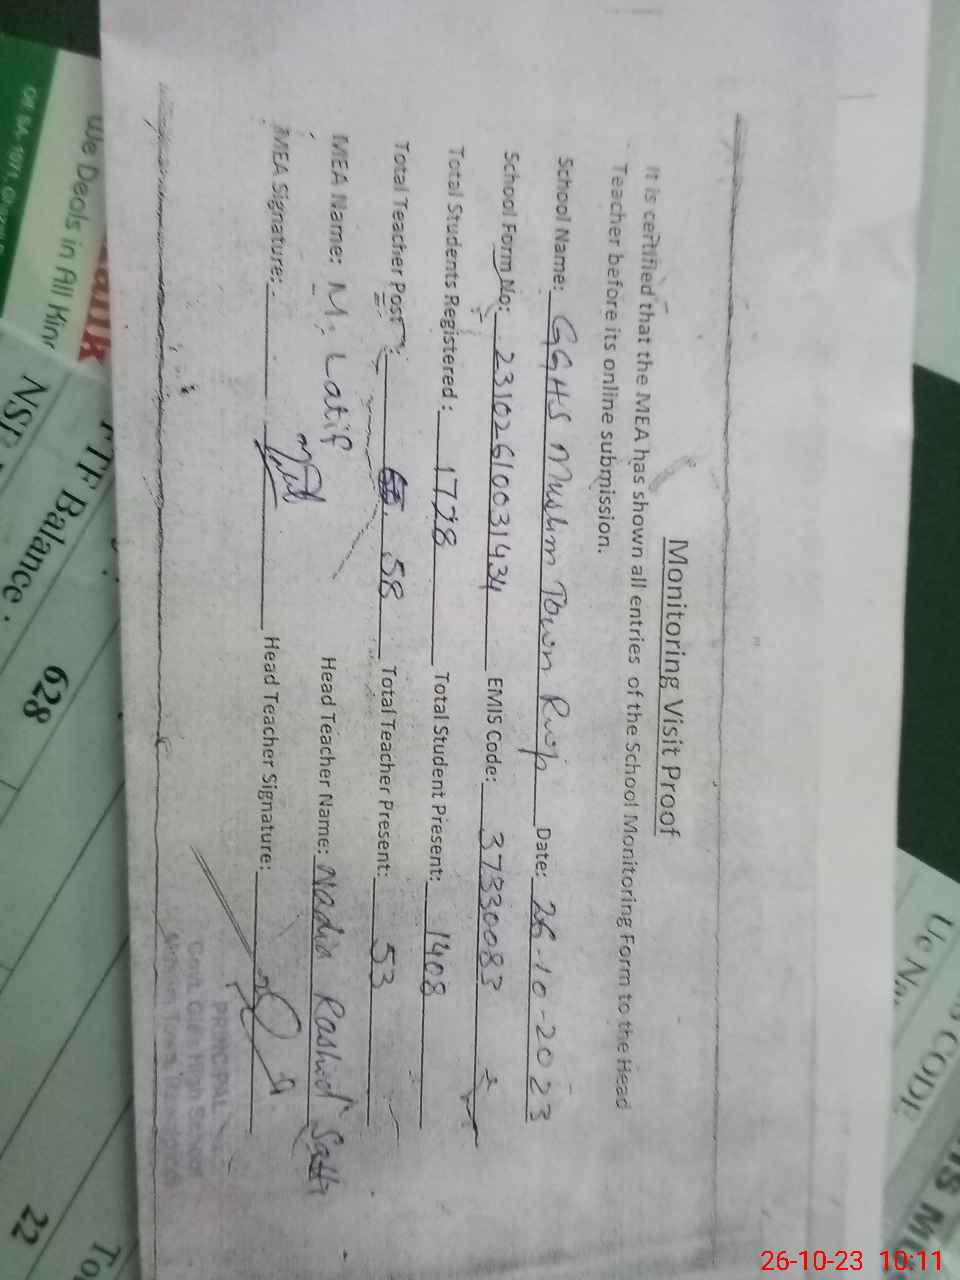 Monitoring Visit Proof
It is certified that the MEA has shown all entries of the School Monitoring Form to the Head
Teacher before its online submission.
School Name: GGHS Muslim Town Rwp Date: 26-10-2023
School Form No: 23102610031434 EMIS Code: 37330083
Total Students Registered: 1778 Total Student Present: 1408
Total Teacher Post: 58 Total Teacher Present: 53
MEA Name: M. Latif Head Teacher Name: Nadia Rashid Satti
MEA Signature: Head Teacher Signature:
PRINCIPAL
Govt. Girls High School
Muslim Town Rawalpindi
We Deals in All Kin
TTF Balance . 628
NSB 22
To
Uc No.
CODE
26-10-23 10:11